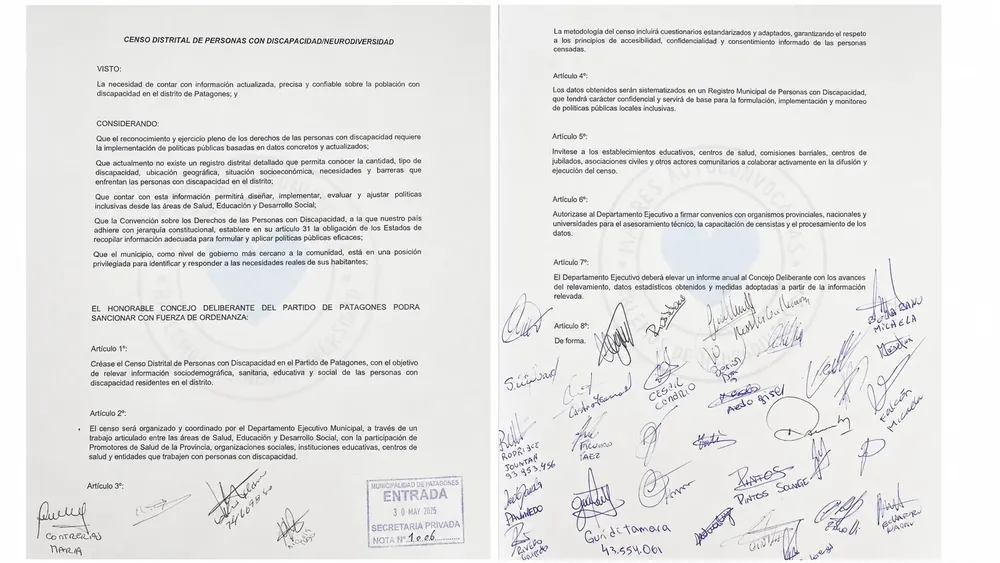 CENSO DISTRITAL DE PERSONAS CON DISCAPACIDAD/NEURODIVERSIDAD
VISTO:
La necesidad de contar con información actualizada, precisa y confiable sobre la población con
discapacidad en el distrito de Patagones; y
CONSIDERANDO:
Que el reconocimiento y ejercicio pleno de los derechos de las personas con discapacidad requiere
la implementación de políticas públicas basadas en datos concretos y actualizados;
Que actualmente no existe un registro distrital detallado que permita conocer la cantidad, tipo de
discapacidad, ubicación geográfica, situación socioeconómica, necesidades y barreras que
enfrentan las personas con discapacidad en el distrito;
Que contar con esta información permitirá diseñar, implementar, evaluar y ajustar políticas
inclusivas desde las áreas de Salud, Educación y Desarrollo Social;
Que la Convención sobre los Derechos de las Personas con Discapacidad, a la que nuestro país
adhiere con jerarquía constitucional, establere en su artículo 31 la obligación de los Estados de
recopilar información adecuada para formular y aplicar políticas públicas eficaces;
Que el municipio, como nivel de gobierno más cercano a la comunidad, está en una posición
privilegiada para identificar y responder a las necesidades reales de sus habitantes;
EL HONORABLE CONCEJO DELIBERANTE DEL PARTIDO DE PATAGONES PODRA
SANCIONAR CON FUERZA DE ORDENANZA:
Artículo 1º:
Créase el Censo Distrital de Personas con Discapacidad en el Partido de Patagones, con el objetivo
de relevar información sociodemográfica, sanitaria, educativa y social de las personas con
discapacidad residentes en el distrito.
Artículo 2º:
El censo será organizado y coordinado por el Departamento Ejecutivo Municipal, a través de un
trabajo articulado entre las áreas de Salud, Educación y Desarrollo Social, con la participación de
Promotores de Salud de la Provincia, organizaciones sociales, instituciones educativas, centros de
salud y entidades que trabajen con personas con discapacidad.
Artículo 3º:
CONTRERAS
MARIA
MUNICIPALIDAD DE PATAGONES
ENTRADA
30 MAY 2025
SECRETARIA PRIVADA
NOTA Nº 1006
La metodología del censo incluirá cuestionarios estandarizados y adaptados, garantizando el respeto
a los principios de accesibilidad, confidencialidad y consentimiento informado de las personas
censadas.
Artículo 4º:
Los datos obtenidos serán sistematizados en un Registro Municipal de Personas con Discapacidad,
que tendrá carácter confidencial y servirá de base para la formulación, implementación y monitoreo
de políticas públicas locales inclusivas.
Artículo 5º:
Invitese a los establecimientos educativos, centros de salud, comisiones barriales, centros de
jubilados, asociaciones civiles y otros actores comunitarios a colaborar activamente en la difusión y
ejecución del censo.
Artículo 6º:
Autorizase al Departamento Ejecutivo a firmar convenios con organismos provinciales, nacionales y
universidades para el asesoramiento técnico, la capacitación de censistas y el procesamiento de los
datos.
Artículo 7º:
El Departamento Ejecutivo deberá elevar un informe anual al Concejo Deliberante con los avances
del relevamiento, datos estadísticos obtenidos y medidas adoptadas a partir de la información
relevada.
Artículo 8º:
De forma.
MICAELA
CESAR
Aedo Gisel
MICAELA
RODRIGEZ
JOUNTAR
93 953.456
PINTOS
PINTOS SOLANGE
Gunditamara
43.554.061
RIVERO